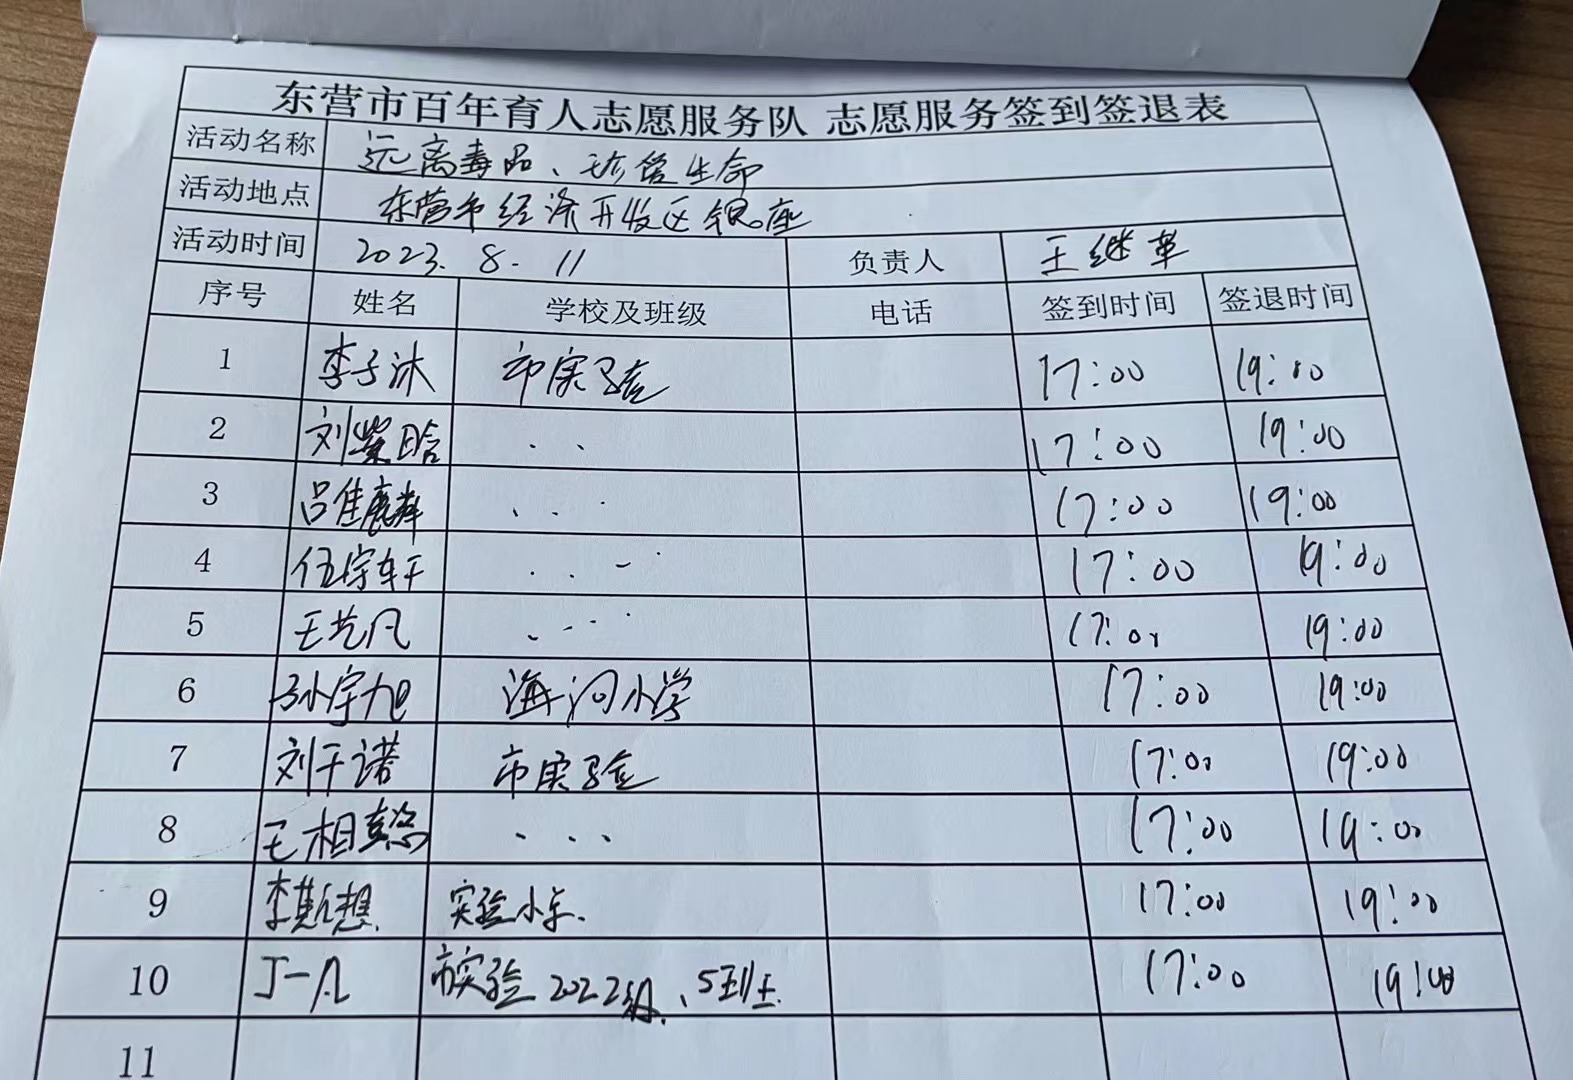 东营市百年育人志愿服务队 志愿服务签到签退表
活动名称 远离毒品、珍爱生命
活动地点 东营市经济开发区银座
活动时间 2023.8.11 负责人 王继革
序号 姓名 学校及班级 电话 签到时间 签退时间
1 李子沐 市实验 17:00 19:00
2 刘紫晗 17:00 19:00
3 吕佳麒 17:00 19:00
4 伍宇轩 17:00 19:00
5 王艺凡 17:00 19:00
6 孙宇旭 海河小学 17:00 19:00
7 刘千诺 市实验 17:00 19:00
8 王相懿 17:00 19:00
9 李斯想 实验小学. 17:00 19:00
10 丁一凡 市实验2022级、5班 17:00 19:00
11